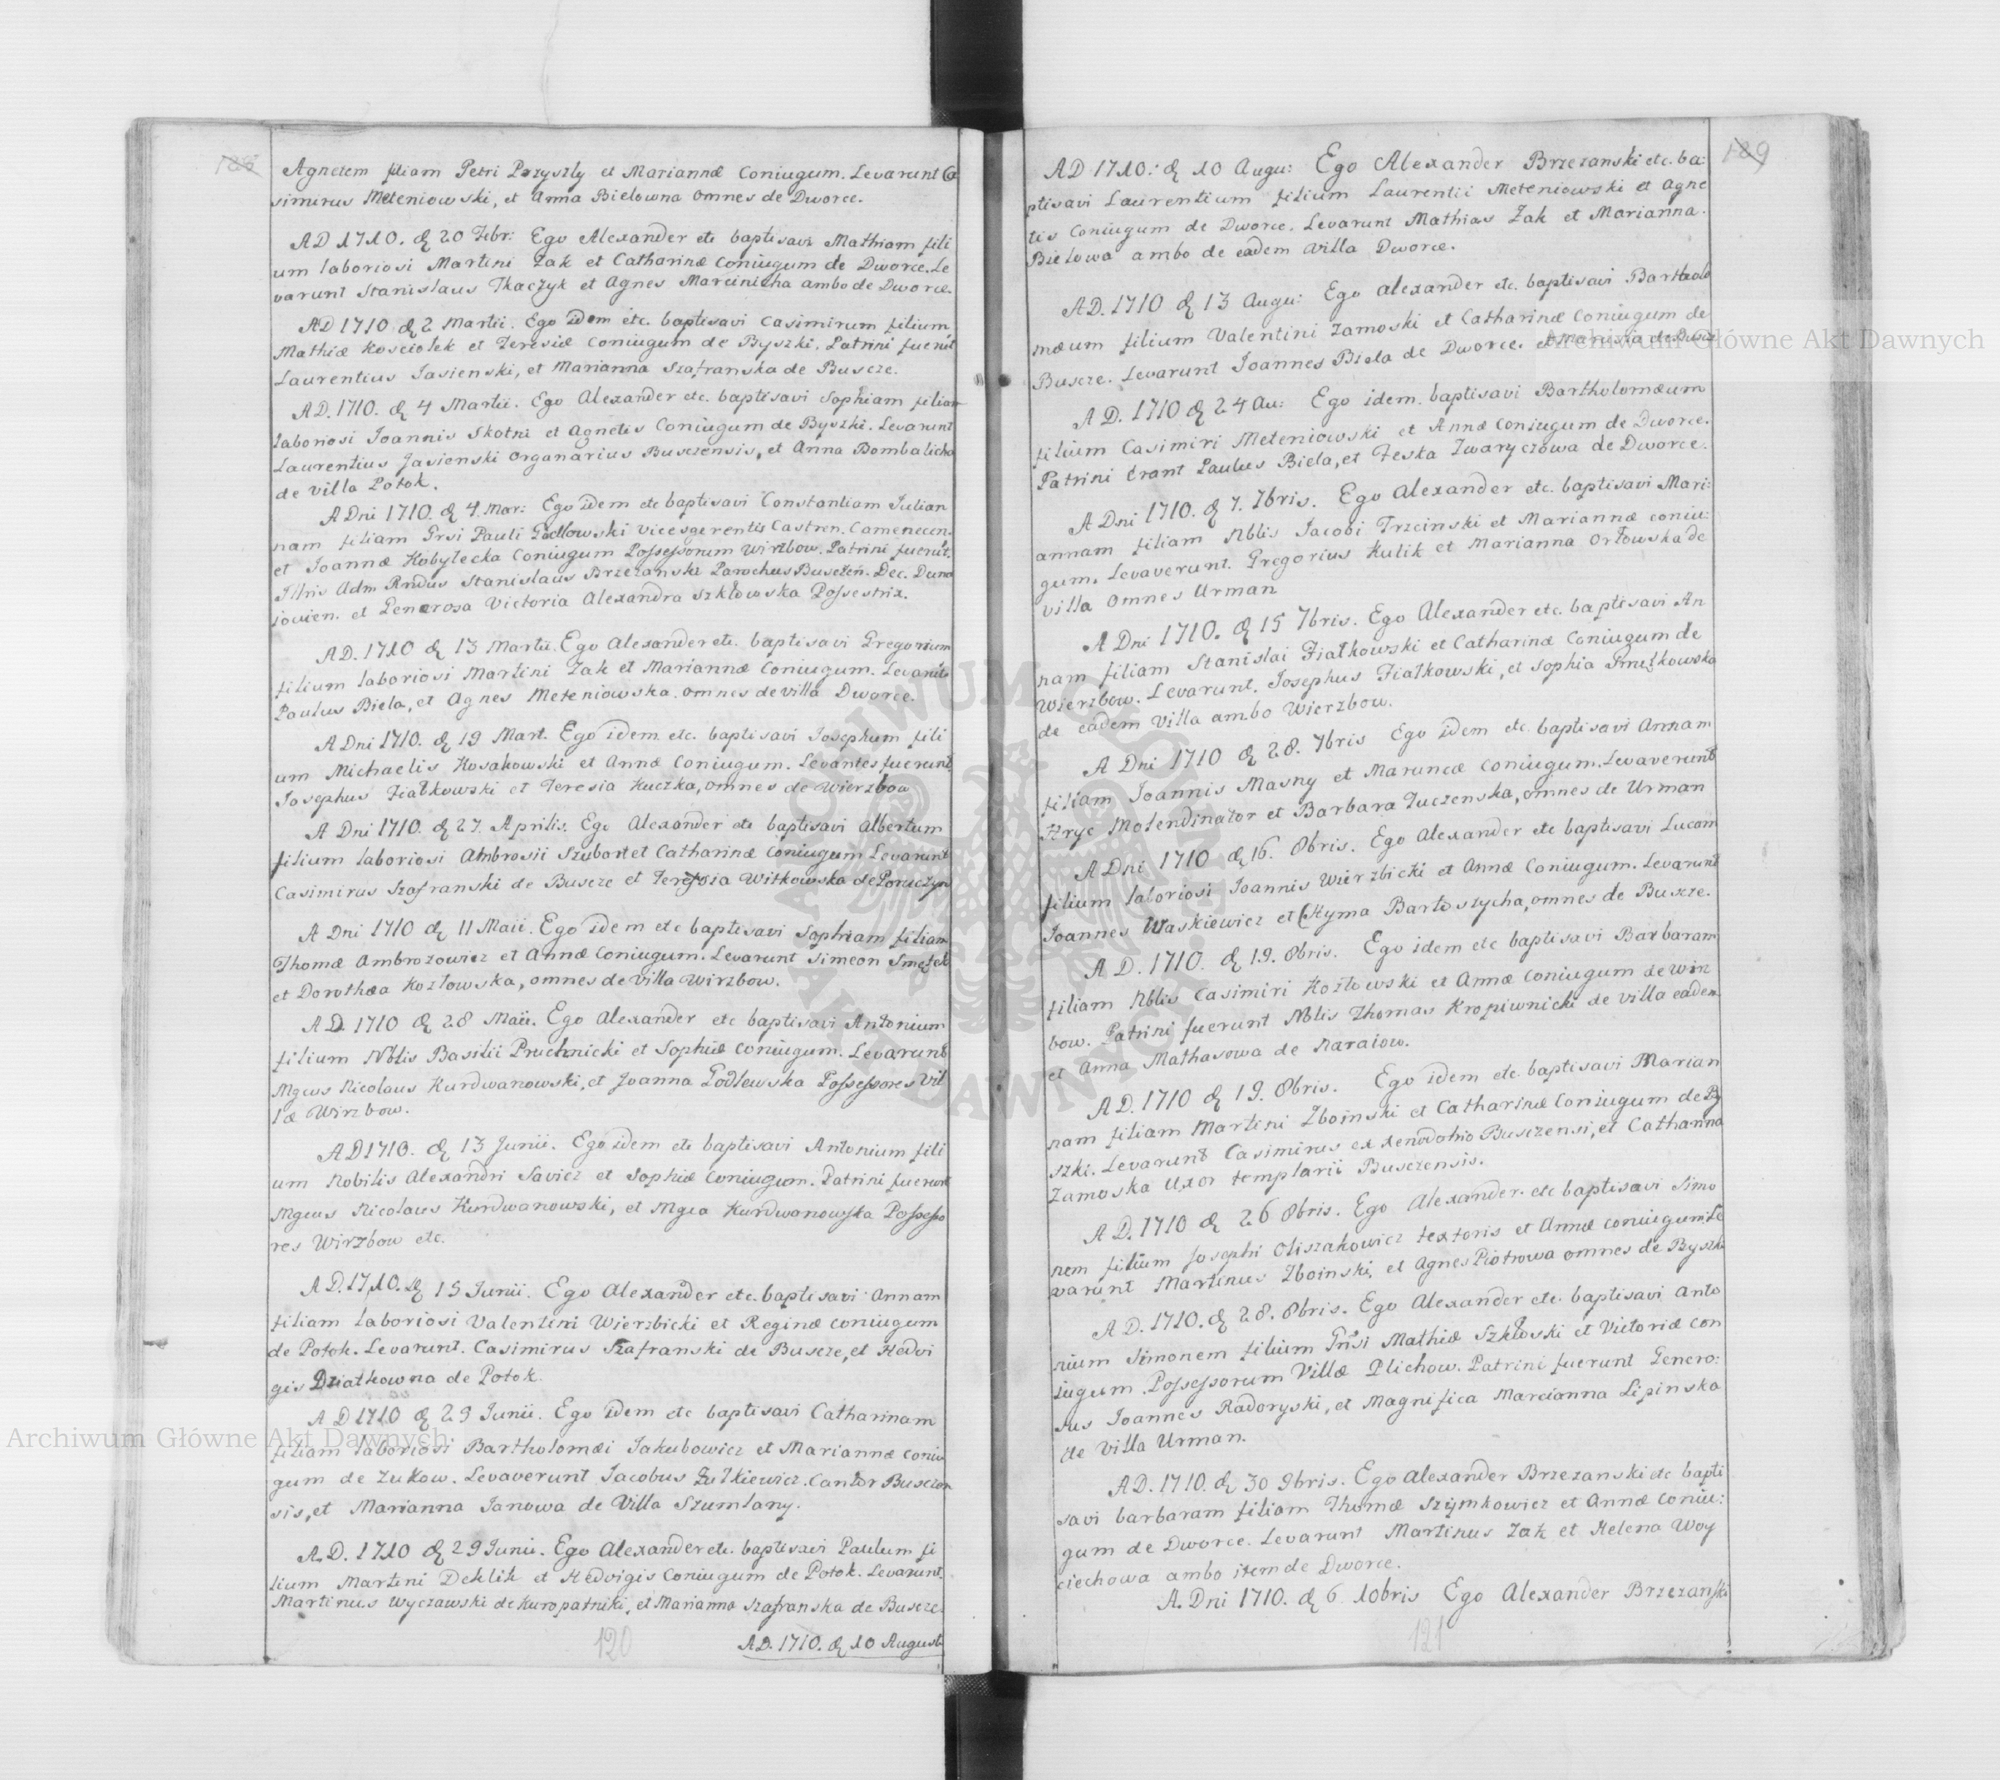 188
Agnetem filiam Petri Przyszly et Mariannæ Coniugum. Levarunt Ca
simirus Meteniowski, et Anna Bielowna omnes de Dworce.
AD 1710. d 20 Febr: Ego Alexander etc baptisavi Mathiam fili
um laboriosi Martini Zak et Catharinæ Coniugum de Dworce. Le
varunt Stanislaus Tkaczyk et Agnes Marcinicha ambo de Dworce.
AD 1710 d 2 Martii. Ego idem etc. baptisavi Casimirum filium
Mathiæ Kosciolek et Teresiæ Coniugum de Byszki. Patrini fuerunt
Laurentius Jasienski, et Marianna Szafranska de Buscze.
AD. 1710. d 4 Martii. Ego Alexander etc. baptisavi Sophiam filiam
laboriosi Joannis Skotni et Agnetis Coniugum de Byszki. Levarunt
Laurentius Jasienski Organarius Busczensis, et Anna Bombalicha
de villa Potok.
A Dni 1710. d 4. Mar: Ego idem etc baptisavi Constantiam Julian
nam filiam Grsi Pauli Godlowski Vicesgerentis Castren. Camenecen.
et Joannæ Kobylecka Coniugum Possessorum Wirzbow. Patrini fuerut.
Illris Adm Rndus Stanislaus Brzezanski Parochus Buscżen. Dec. Duna
iovien. et Generosa Victoria Alexandra Szkłowska Possestrix.
AD. 1710 d 13 Martii. Ego Alexander etc. baptisavi Gregorium
filium laboriosi Martini Zak et Mariannæ Coniugum. Levarut
Paulus Biela, et Agnes Meteniowska. omnes de villa Dworce.
A Dni 1710. d 19 Mart. Ego idem etc. baptisavi Josephum fili
um Michaelis Kosakowski et Annæ Coniugum. Levantes fuerunt
Josephus Fiałkowski et Teresia Kuczka, omnes de Wierzbow
A Dni 1710. d 27. Aprilis. Ego Alexander etc baptisavi Albertum
filium laboriosi Ambrosii Szubort et Catharinæ Coniugum Levarunt
Casimirus Szafranski de Buscze et Teresia Witkowska de Poruczyn
A Dni 1710 d 11 Maii. Ego idem etc baptisavi Sophiam filiam
Thomæ Ambrozowicz et Annæ Coniugum. Levarunt Simeon Smętek
et Dorothæa Kozłowska, omnes de Villa Wirzbow.
AD. 1710 d 28 Maii. Ego Alexander etc baptisavi Antonium
filium Nblis Basilii Pruchnicki et Sophiæ Coniugum. Levarunt
Mgcus Nicolaus Kurdwanowski, et Joanna Godlewska Possessores Vil
læ Wirzbow.
AD 1710. d 13 Junii. Ego idem etc baptisavi Antonium fili
um Nobilis Alexandri Savicz et Sophiæ Coniugum. Patrini fuerunt
Mgcus Nicolaus Kurdwanowski, et Mgca Kurdwanowska Possesso
res Wirzbow etc.
A D. 1710. d 15 Junii. Ego Alexander etc. baptisavi Annam
filiam laboriosi Valentini Wierzbicki et Reginæ Coniugum
de Potok. Levarunt. Casimirus Szafranski de Buscze, et Hedvi
gis Dziatkowna de Potok.
A D 1710 d 29 Junii. Ego idem etc baptisavi Catharinam
filiam laboriosi Bartholomæi Jakubowicz et Mariannæ Coniu
gum de Zukow. Levaverunt Jacobus Żołkiewicz Cantor Busczen
sis, et Marianna Janowa de Villa Szumlany.
A. D. 1710 d 29 Junii. Ego Alexander etc. baptisavi Paulum fi
lium Martini Deklik et Hedvigis Coniugum de Potok. Levarunt.
Martinus Wyczawski de Kuropatniki, et Marianna Szafranska de Buscze.
120
AD. 1710. d 10 August
189
AD 1710: d 10 Augu: Ego Alexander Brzezanski etc. ba:
ptisavi Laurentium filium Laurentii Meteniowski et Agne
tis Coniugum de Dworce. Levarunt Mathias Zak et Marianna
Bielowa ambo de eadem Villa Dworce.
AD. 1710 d 13 Augu: Ego Alexander etc. baptisavi Bartholo
mæum filium Valentini Zamoski et Catharinæ Coniugum de
Buscze. Levarunt Joannes Biela de Dworce. et Marusia de Buscz
A D. 1710 d 24 Au: Ego idem. baptisavi Bartholomæum
filium Casimiri Meteniowski et Annæ Coniugum de Dworce.
Patrini erant Paulus Biela, et Feska Zwaryczowa de Dworce.
A Dni 1710. d 7. 7bris. Ego Alexander etc. baptisavi Mari:
annam filiam Nblis Jacobi Trzcinski et Mariannæ Coniu:
gum. Levaverunt. Gregorius Kulik et Marianna Orłowska de
villa omnes Urman
A Dni 1710. d 15 7bris. Ego Alexander etc. baptisavi An
nam filiam Stanislai Fiałkowski et Catharinæ Coniugum de
Wierzbow. Levarunt. Josephus Fiałkowski, et Sophia Smętkowska
de eadem villa ambo Wierzbow.
A Dni 1710 d 28. 7bris Ego idem etc. baptisavi Annam
filiam Joannis Masny et Maruncæ Coniugum. Levaverunt
Hryc Molendinator et Barbara Tuczenska, omnes de Urman
A Dni 1710 d 16. 8bris. Ego Alexander etc baptisavi Lucam
filium laboriosi Joannis Wierzbicki et Annæ Coniugum. Levarunt
Joannes Waskiewicz et Chyma Bartoszycha, omnes de Buscze.
A D. 1710. d 19. 8bris. Ego idem etc baptisavi Barbaram
filiam Nblis Casimiri Kozłowski et Annæ Coniugum de Wirz
bow. Patrini fuerunt Nblis Thomas Kropiwnicki de villa eadem
et Anna Mathasowa de Naraiow.
A D. 1710 d 19. 8bris. Ego idem etc. baptisavi Marian
nam filiam Martini Zboinski et Catharinæ Coniugum de By
szki. Levarunt Casimirus ex xenodohio Busczensi, et Catharina
Zamoska Uxor templarii Busczensis.
A D. 1710 d 26 8bris. Ego Alexander. etc baptisavi Simo
nem filium Josephi Oliszakowicz textoris et Annæ Coniugum. Le
varunt Martinus Zboinski, et Agnes Piotrowa omnes de Byszki
A D. 1710. d 28. 8bris. Ego Alexander etc. baptisavi Anto
nium Simonem filium Grsi Mathiæ Szkłoski et Victoriæ Con
iugum Possessorum Villæ Plichow. Patrini fuerunt Genero:
sus Joannes Radoryski, et Magnifica Marcianna Lipinska
de Villa Urman.
AD. 1710. d 30 9bris. Ego Alexander Brzezanski etc bapti
savi barbaram filiam Thomæ Szymkowicz et Annæ Coniu:
gum de Dworce. Levarunt Martinus Zak et Helena Woy
ciechowa ambo item de Dworce.
A. Dni 1710. d 6 10bris Ego Alexander Brzezanski
121
Archiwum Główne Akt Dawnych
Archiwum Główne Akt Dawnych
ARCHIWUM GŁÓWNE AKT DAWNYCH